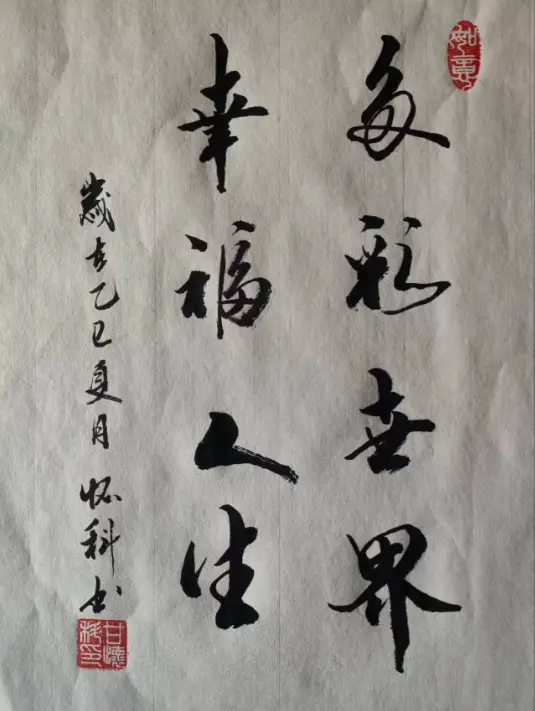 如意
多彩世界
幸福人生
歲在乙巳夏月 怀科书
甘懷科印